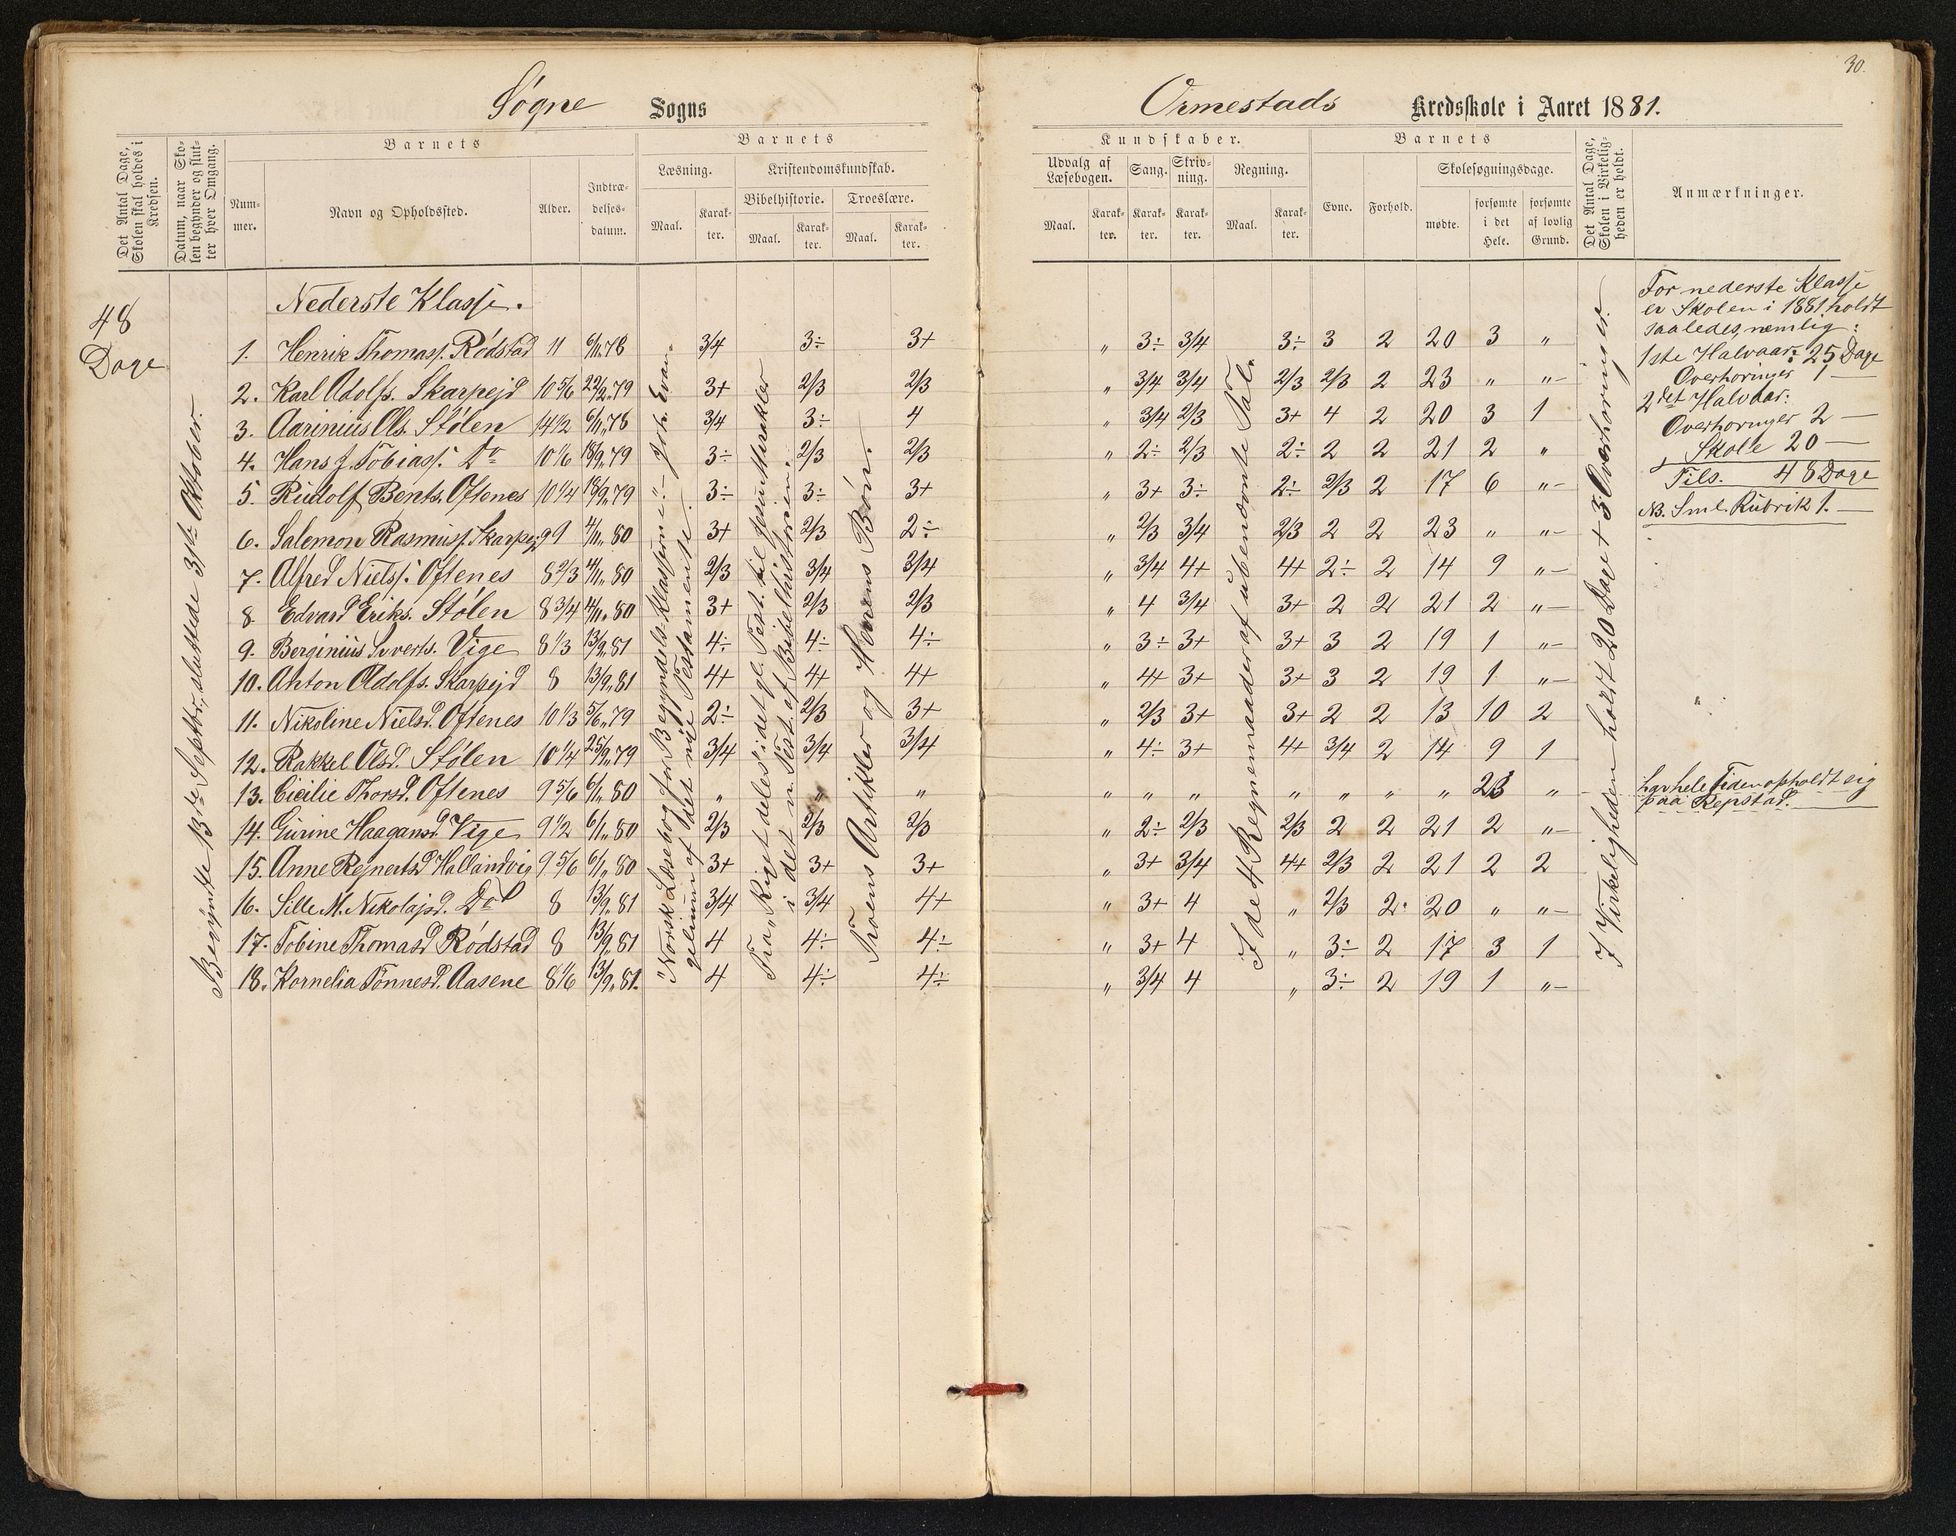 30.
Søgne Sogns
Ormestads Kredsskole i Aaret 1881.
Det Antal Dage, Skolen skal holdes i Kredsen.
Datum, naar Skolen begynder og slutter hver Omgang.
Barnets
Nummer.
Navn og Opholdssted.
Alder.
Indtrædelsesdatum.
Barnets
Læsning.
Maal.
Karakter.
Kristendomskundskab.
Bibelhistorie.
Maal.
Karakter.
Troeslære.
Maal.
Karakter.
Kundskaber.
Udvalg af Læsebogen.
Maal.
Karakter.
Sang.
Karakter.
Skrivning.
Karakter.
Regning.
Maal.
Karakter.
Barnets
Evne.
Forhold.
Skolesøgningsdage.
mødte.
forsømte i det Hele.
forsømte af lovlig Grund.
Det Antal Dage, Skolen i Virkeligheden er holdt.
Anmærkninger.
48 Dage
Begyndte 13de Septbr., sluttede 31te Oktober.
Nederste Klasse.
1. Henrik Thomass. Rødstad 11 6/11 78 3/4 3÷ 3+ „ 3÷ 3/4 3÷ 3 2 20 3 „
2. Karl Adolfs. Skarpejd 10 5/6 22/2 79 3+ 2/3 2/3 „ 3/4 3/4 2/3 2/3 2 23 „ „–
3. Aarinius Ols. Stølen 14 1/2 6/11 78 3/4 3÷ 4 „ 3/4 2/3 3+ 4 2 20 3 1
4. Hans J. Tobiass. Do 10 1/6 18/9 79 3÷ 2/3 2/3 „ 2÷ 2/3 2÷ 2 2 21 2 „
5. Rudolf Bents. Oftenes 10 1/4 18/9 79 3÷ 3÷ 3+ „ 3+ 3÷ 2÷ 2/3 2 17 6 „–
6. Salemon Rasmuss. Skarpejd 9 4/11 80 3+ 2/3 2÷ „ 2/3 3/4 2/3 2 2 23 „ „–
7. Alfred Nielss. Oftenes 8 2/3 4/11 80 2/3 3/4 3/4 „ 3/4 4+ 4+ 2÷ 2 14 9 „–
8. Edvard Eriks. Stølen 8 3/4 4/11 80 3+ 2/3 2/3 „ 4 3/4 3+ 2 2 21 2 „–
9. Berginius Syverts. Vige 8 1/3 13/9 81 4÷ 4÷ 4÷ „ 3÷ 3+ 3+ 3 2 19 1 „–
10. Anton Adolfs. Skarpejd 8 13/9 81 4+ 4+ 4+ „ 4+ 3+ 3+ 3 2 19 1 „–
11. Nikoline Nielsd. Oftenes 10 1/3 5/6 79 2÷ 2/3 3+ „ 2/3 3+ 3+ 2 2 13 10 2
12. Rakkel Olsd. Stølen 10 1/4 25/9 79 3/4 3/4 3/4 „ 4÷ 3+ 4+ 3/4 2 14 9 1
13. Cicilie Thorsd. Oftenes 9 5/6 6/11 80 „ „ „ „ „ „ „ „ „ „ 23 „
14. Gurine Haagansd. Vige 9 1/2 6/11 80 2/3 2/3 2/3 „ 2÷ 2/3 2/3 2 2 21 2 „–
15. Anne Rejnertsd Hallandvig 9 5/6 6/11 80 3+ 3+ 3+ „ 3+ 3/4 4+ 2/3 2 21 2 2
16. Sille M. Nikolajsd. Do 8 13/9 81 3/4 3/4 4+ „ 3+ 4 „ 2/3 2 20 „ „–
17. Tobine Thomasd Rødstad 8 13/9 81 4 4÷ 4÷ „ 3+ 4 „ 3÷ 2 17 3 1
18. Kornelia Tønnesd. Aasene 8 1/6 13/9 81. 4 4÷ 4÷ „ 3/4 4 „ 3÷ 2 19 1 „–
"Norsk Læsebog for Begyndelsklasserne". – Joh. Evangelium af det nye Testamente.
Fra „Riget deles" i det gl. Test. til Jesu Mirakler i det n. Test. af Bibelhistorien.
Troens Artikler og Herrens Bøn.
I de 4 Regnemaader af ubenævnte Tal.
I Virkeligheden holdt 20 Dage + 3 Overhøringer.
For nederste Klasse
er Skolen i 1881 holdt
saaledes, nemlig:
1ste Halvaar: 25 Dage
Overhøringer 1 –
2det Halvaar:
Overhøringer 2 –
Skole 20 –
Tils. 48 Dage
NB. Sml. Rubrik 1. –
har hele Tiden opholdt sig
paa Repstad.